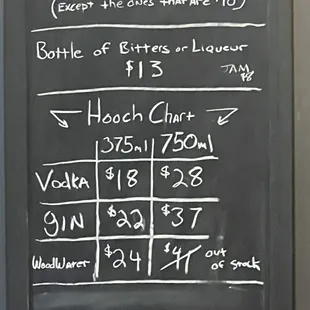 (Except the ones that are $10)
Bottle of Bitters or Liqueur
$13
Hooch Chart
375ml 750ml
Vodka $18 $28
gin $22 $37
WoodWater $24 $41 out
of stock